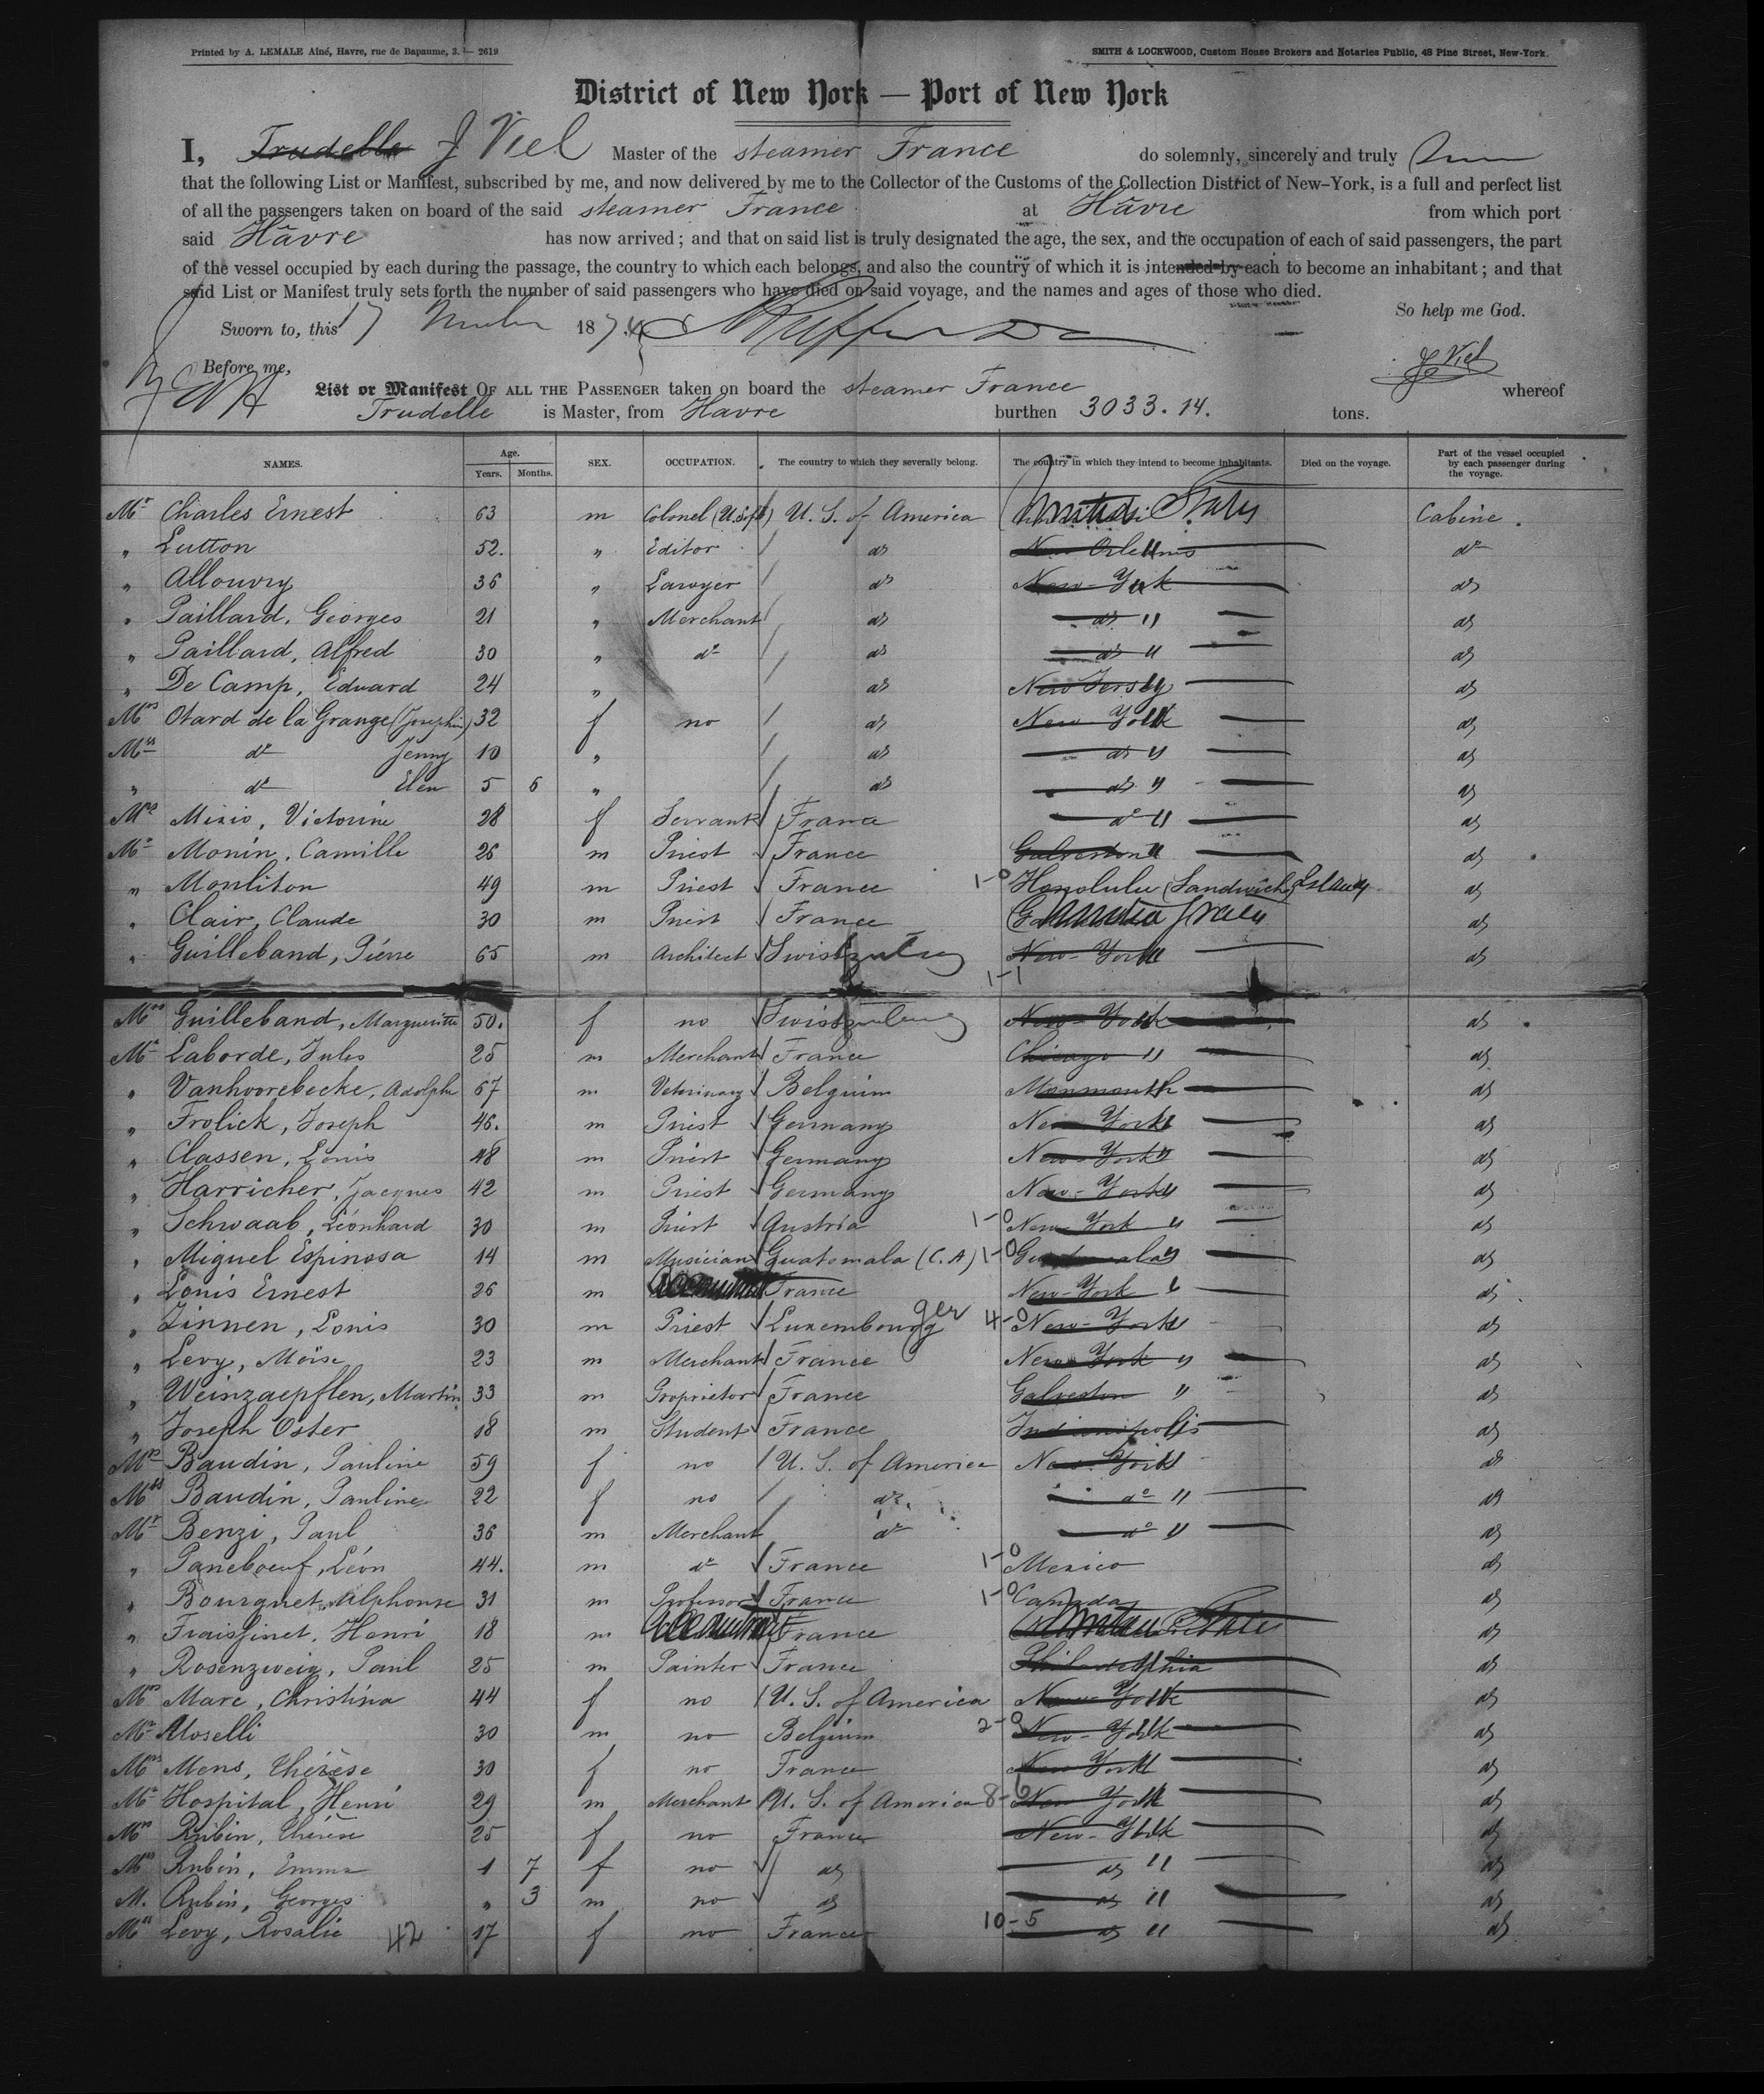 Printed by A. LEMALE Aîné, Havre, rue de Bapaume, 3. — 2619
SMITH & LOCKWOOD, Custom House Brokers and Notaries Public, 48 Pine Street, New-York.
District of New York — Port of New York
I, Trudelle J Viel Master of the steamer France do solemnly, sincerely and truly
that the following List or Manifest, subscribed by me, and now delivered by me to the Collector of the Customs of the Collection District of New-York, is a full and perfect list
of all the passengers taken on board of the said steamer France at Hâvre from which port
said Hâvre has now arrived ; and that on said list is truly designated the age, the sex, and the occupation of each of said passengers, the part
of the vessel occupied by each during the passage, the country to which each belongs, and also the country of which it is intended by each to become an inhabitant ; and that
said List or Manifest truly sets forth the number of said passengers who have died on said voyage, and the names and ages of those who died.
So help me God.
Sworn to, this 17 187
J Viel
Before me,
List or Manifest OF ALL THE PASSENGER taken on board the steamer France whereof
Trudelle is Master, from Havre burthen 3033.14. tons.
NAMES. Age. Years. Months. SEX. OCCUPATION. The country to which they severally belong. The country in which they intend to become inhabitants. Died on the voyage. Part of the vessel occupied by each passenger during the voyage.
Mr Charles Ernest 63 m Colonel U. S. of America United States Cabine.
" Lutton 52. " Editor do New Orleans " do
" Allouvry 36 " Lawyer do New-York do
" Paillard, Georges 21 " Merchant do do " do
" Paillard, Alfred 30 " do do do " do
" De Camp, Edward 24 " do New Jersey do
Mrs Otard de la Grange (Josephin) 32 f no do New York do
Miss do Jenny 10 " do do " do
" do Elen 5 6 " do do " do
Mrs Mizio, Victorine 28 f Servant France do " do
Mr Monin, Camille 26 m Priest France Galveston " do
" Monliton 49 m Priest France 1-0 Honolulu (Sandwich Islands do
" Clair, Claude 30 m Priest France do
" Guilleband, Pierre 65 m Architect New-York do
1-1
Mrs Guilleband, Margueritte 50. f no New-York do
Mr Laborde, Jules 25 m Merchant France Chicago " do
" Vanhoorebecke, Adolphe 67 m Veterinary Belgium Monmouth do
" Frolick, Joseph 46. m Priest Germany New York do
" Classen, Louis 48 m Priest Germany New-York do
" Harricher, Jacques 42 m Priest Germany New-York do
" Schwaab, Léonhard 30 m Priest Austria 1-0 New-York " do
" Miguel Espinosa 14 m Musician Guatemala (C. A) 1-0 Guatemala do
" Louis Ernest 26 m France New-York do
" Zinnen, Louis 30 m Priest Luxembourg Ger 4-0 New-York do
" Levy, Moïse 23 m Merchant France New York " do
" Weinzaepflen, Martin 33 m Proprietor France Galveston " do
" Joseph Oster 18 m Student France Indianopolis do
Mrs Baudin, Pauline 59 f no U. S. of America New-York do
Miss Baudin, Pauline 22 f no do do " do
Mr Benzi, Paul 36 m Merchant do do " do
" Paneboeuf, Léon 44. m do France 1-0 Mexico do
" Bourquet, Alphonse 31 m Professor France 1-0 Canada do
" Fraissinet, Henri 18 m France do
" Rosenzweig, Paul 25 m Painter France Philadelphia do
Mrs Marc, Christina 44 f no U. S. of America New-York do
Mr Moselli 30 m no Belgium 2-0 New-York do
Mrs Mens, Thérèse 30 f no France New York do
Mr Hospital, Henri 29 m Merchant U. S. of America 8- New York do
Mrs Rubin, Thérèse 25 f no France New-York do
Miss Rubin, Emma 1 7 f no do do " do
M. Rubin, Georges " 3 m no do do " do
Miss Levy, Rosalie 42 17 f no France 10-5 do " do